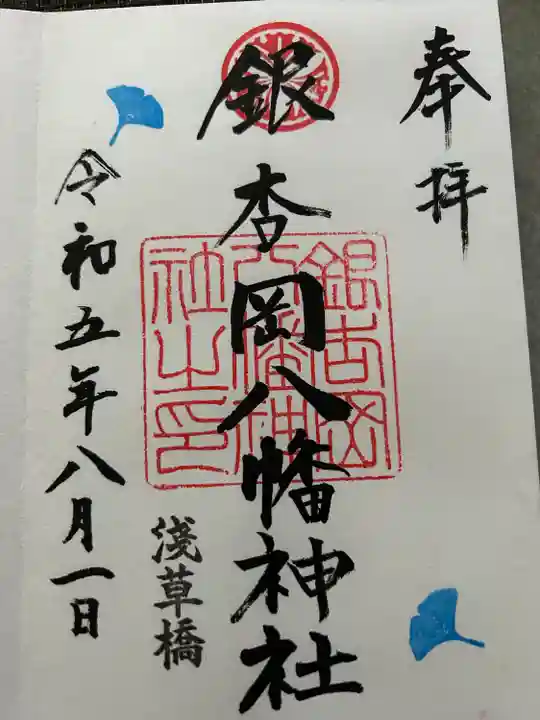 奉拝
銀杏岡八幡神社
銀杏岡
八幡神
社之印
浅草橋
令和五年八月一日